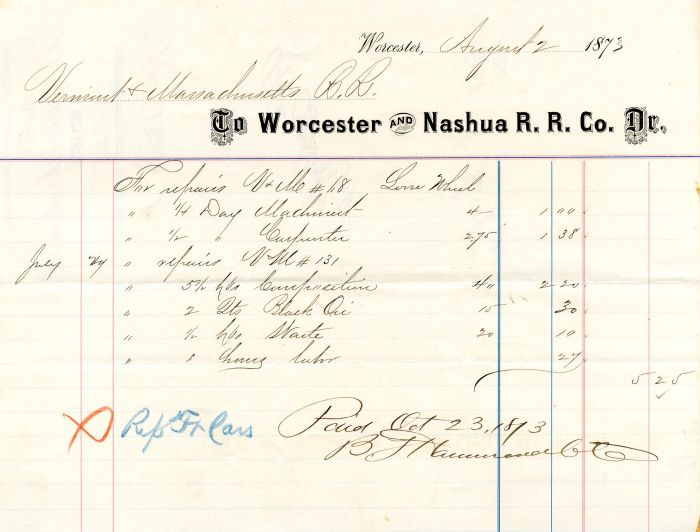 Worcester, August 2 1873
Vermont & Massachusetts R. R.
To Worcester AND Nashua R. R. Co. Dr.
For repairs V & M # 68 Loose Wheel
" 1/4 Day Machinist 4 1 00
" 1/2 " Carpenter 2.75 1 38
July 24 " repairs V M # 131
" 5 1/2 lbs Composition 40 2 20
" 2 Pts Black Oil 15 30
" 1/2 lbs Waste 20 10
" 1 hours labor 27
5 25
Rep's Frt Cars
Paid Oct 23, 1873
B F Hammond